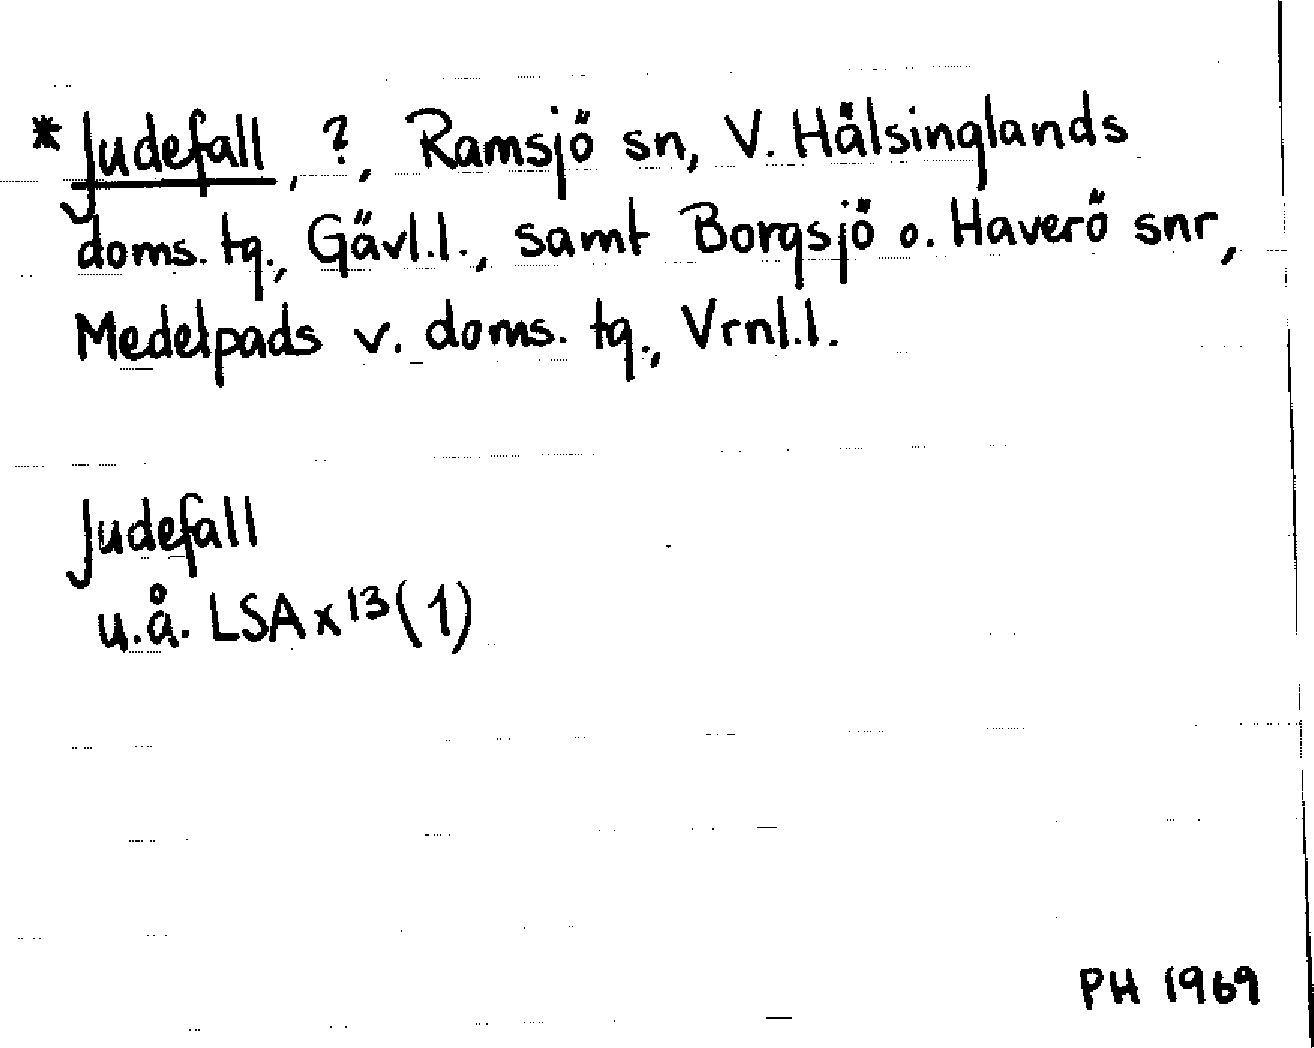 *Judefall, ?, Ramsjö sn, V. Hälsinglands
doms. tg., Gävl.l., samt Borgsjö o. Haverö snr,
Medelpads v. doms. tg., Vrnl.l.
Judefall
u.å. LSA x 13 (1)
PH 1969